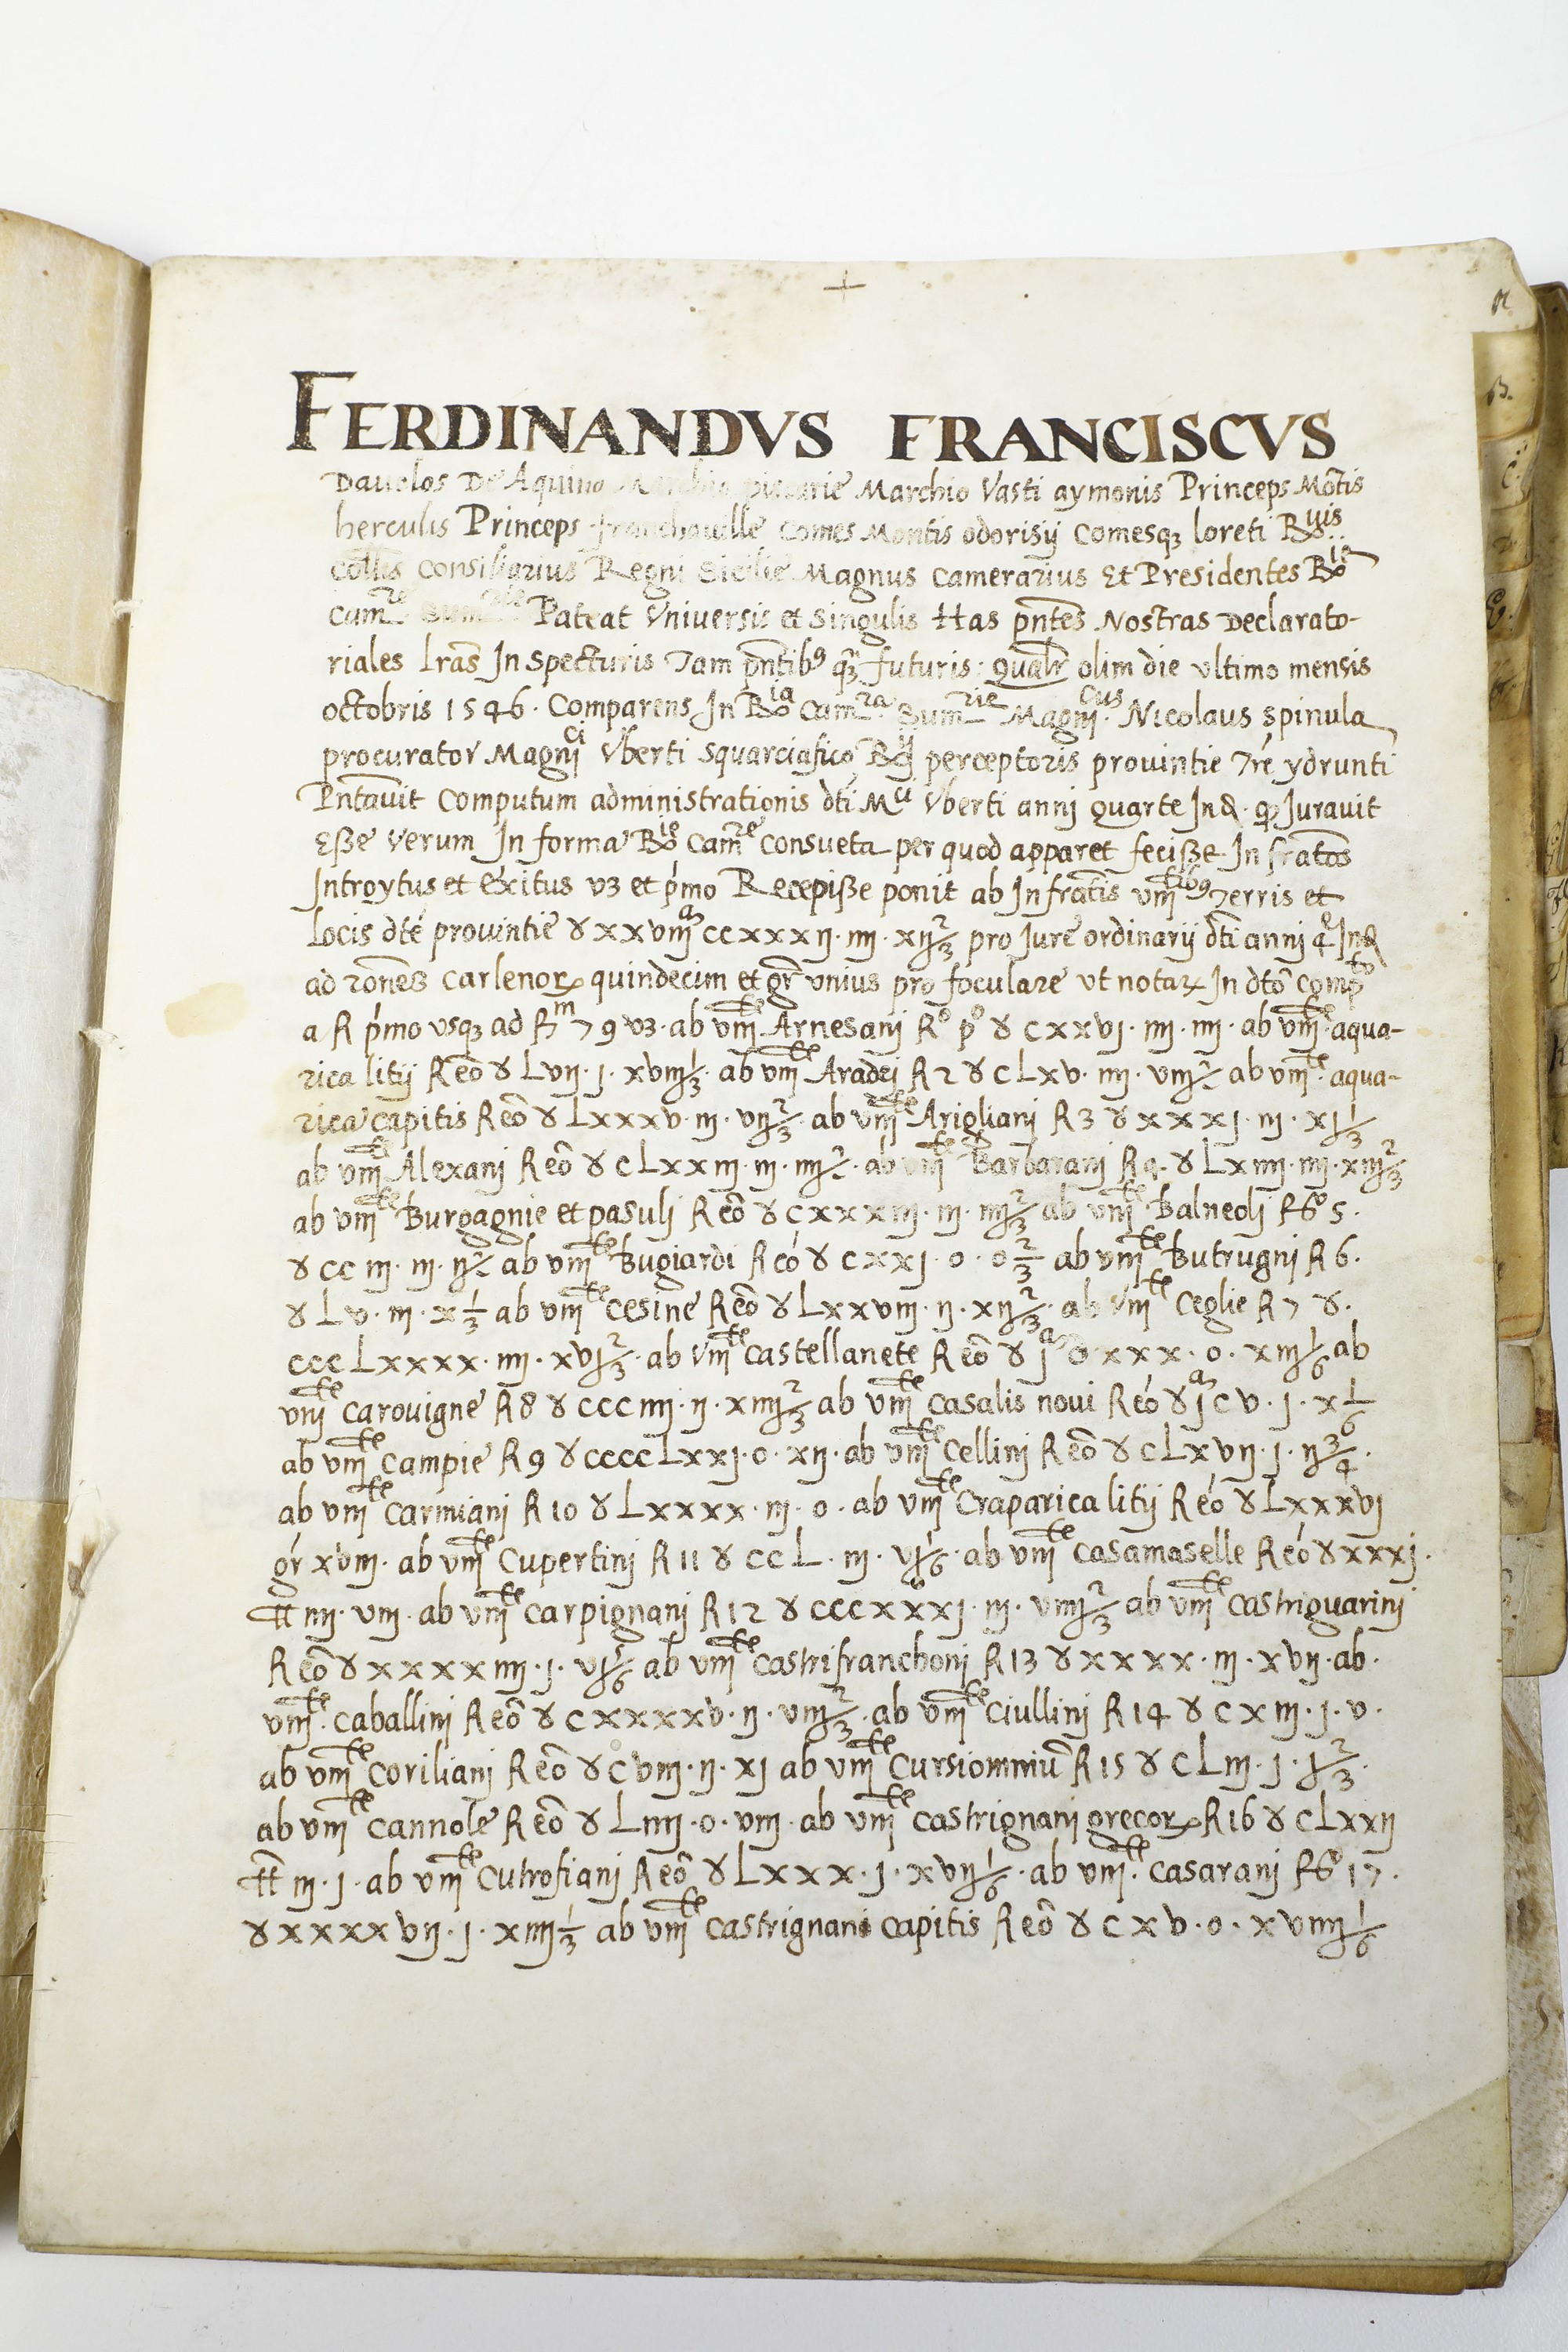 FERDINANDVS FRANCISCVS
Davolos De Aquino Marchio piscarie Marchio Vasti aymonis Princeps Mõtis
herculis Princeps franchaville Comes Montis odorisij Comesqꝫ loreti R^uis
Coll̃is Consiliarius Regni Sicilie Magnus Camerarius Et Presidentes R^ie
Cam^re Sum^rie Pateat Vniversis et Singulis Has p̃ntes Nostras Declarato-
riales l̃ras In Specturis Tam p̃ntibꝰ qꝫ futuris. Qual̃r olim die ultimo mensis
octobris 1546. Comparens In R^ia Cam^ra Sum^rie Magni^cus. Nicolaus spinula
procurator Magni^ci Vberti Squarciafico R^ij perceptoris provintie Tr̃e ydrunti
Pñtavit Computum administrationis dt̃i M^ci Vberti anni quarte Ind. qꝫ Juravit
Esse Verum In forma R^ie Cam^re Consueta per quod apparet fecisse Infrãtos
Introytus et Exitus vꝫ et p̃mo Recepisse ponit ab Infrãtis vni^tibꝰ Terris et
locis dt̃e provintie ɣ xxviii^a ccxxxij. iiij. xij 2/3 pro Jure ordinarij dt̃i anni 4^e Ind
ad rõnes Carlenoꝝ quindecim et gr̃ unius pro foculare ut notaꝝ In dt̃o Comp^to
a R p̃mo usqꝫ ad R^m 79 vꝫ. ab vni^te Arnesani R^o p^o ɣ cxxvj. iiij. iiij. ab vni^te. aqua-
rica litij R eõ ɣ Lvij. j. xviij 1/3. ab vni^te Aradej R 2 ɣ cLxv. iiij. viij 1/2 ab vni^te. aqua-
rica capitis R eõ ɣ Lxxxv. iij. vij 2/3. ab vni^te Arigliani R 3 ɣ xxxj. iij. xj 1/3
ab vni^te Alexani R eõ ɣ cLxxiij. iij. iiij 1/2. ab vni^te Barbarani R 4. ɣ Lxiiij. iiij. xiij 2/3
ab vni^te Burgagnie et pasuli R eõ ɣ cxxxiij. iij. iiij 2/3 ab vni^te Balneoli R^o 5.
ɣ cc iij. iij. ij 1/2 ab vni^te Bugiardi R eó ɣ cxxj. o. o 2/3 ab vni^te Butrugni R 6.
ɣ Lv. iij. x 1/3 ab vni^te Cesine R eõ ɣ Lxxviij. ij. xij 2/3. ab Vni^te Ceglie R 7 ɣ.
cccLxxxx. iiij. xvj 2/3. ab Vni^te Castellanete R eõ ɣ j^a d xxx. o. xiij 1/6 ab
vni^te Carouigne R 8 ɣ ccciiij. ij. xiiij 2/3 ab vni^te Casalis noui R eó ɣ j^a cv. j. x 1/6
ab vni^te Campie R 9 ɣ ccccLxxj. o. xij. ab vni^te Cellini R eõ ɣ cLxvij. j. ij 3/4.
ab vni^te Carmiani R 10 ɣ Lxxxx. iij. o. ab vni^te Craparica litij R eó ɣ Lxxxvj
gr̃ xviij. ab vni^te Cupertini R 11 ɣ ccL. iij. vj 1/6. ab vni^te Casamaselle R eó ɣ xxxj.
tt iiij. viij. ab vni^te Carpignani R 12 ɣ cccxxxj. iij. viiij 2/3 ab vni^te Castriguarini
R eõ ɣ xxxxiiij. j. vj 5/6 ab vni^te Castrifranchoni R 13 ɣ xxxx. iij. xvij. ab.
vni^te. Caballini R eõ ɣ cxxxxv. ij. viij 2/3. ab vni^te Ciullini R 14 ɣ cxiij. j. v.
ab vni^te Coriliani R eõ ɣ cviij. ij. xj ab vni^te Cursiomniũ R 15 ɣ cLiij. j. j 2/3.
ab vni^te Cannole R eõ ɣ Liiij. o. viij. ab vni^te Castrignani grecoꝝ R 16 ɣ cLxxij
tt iij. j. ab vni^te Cutrofiani R eõ ɣ Lxxx. j. xvij 1/6. ab vni^te. Casarani R^o 17.
ɣ xxxxvij. j. xiiij 1/3 ab vni^te Castrignani Capitis R eõ ɣ cxv. o. xviiij 1/6